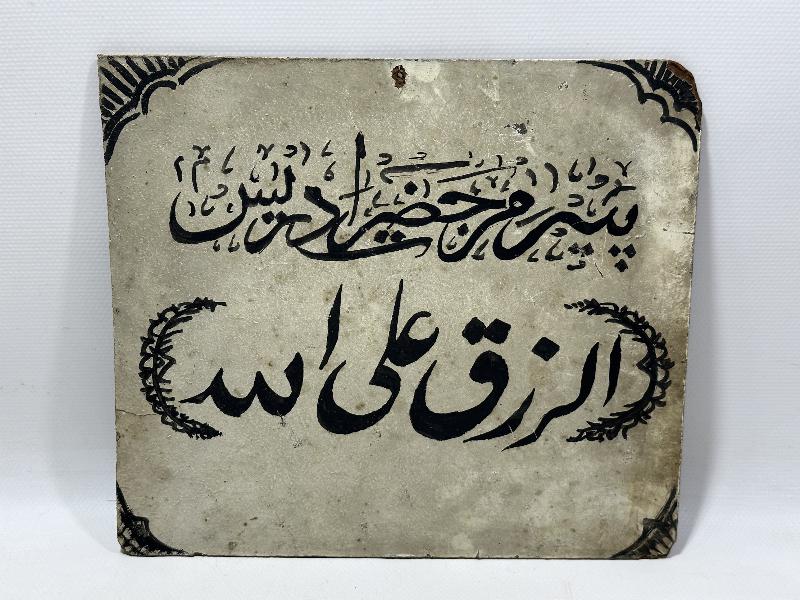 پیرمز حضرت ادریس
الرزق علی الله